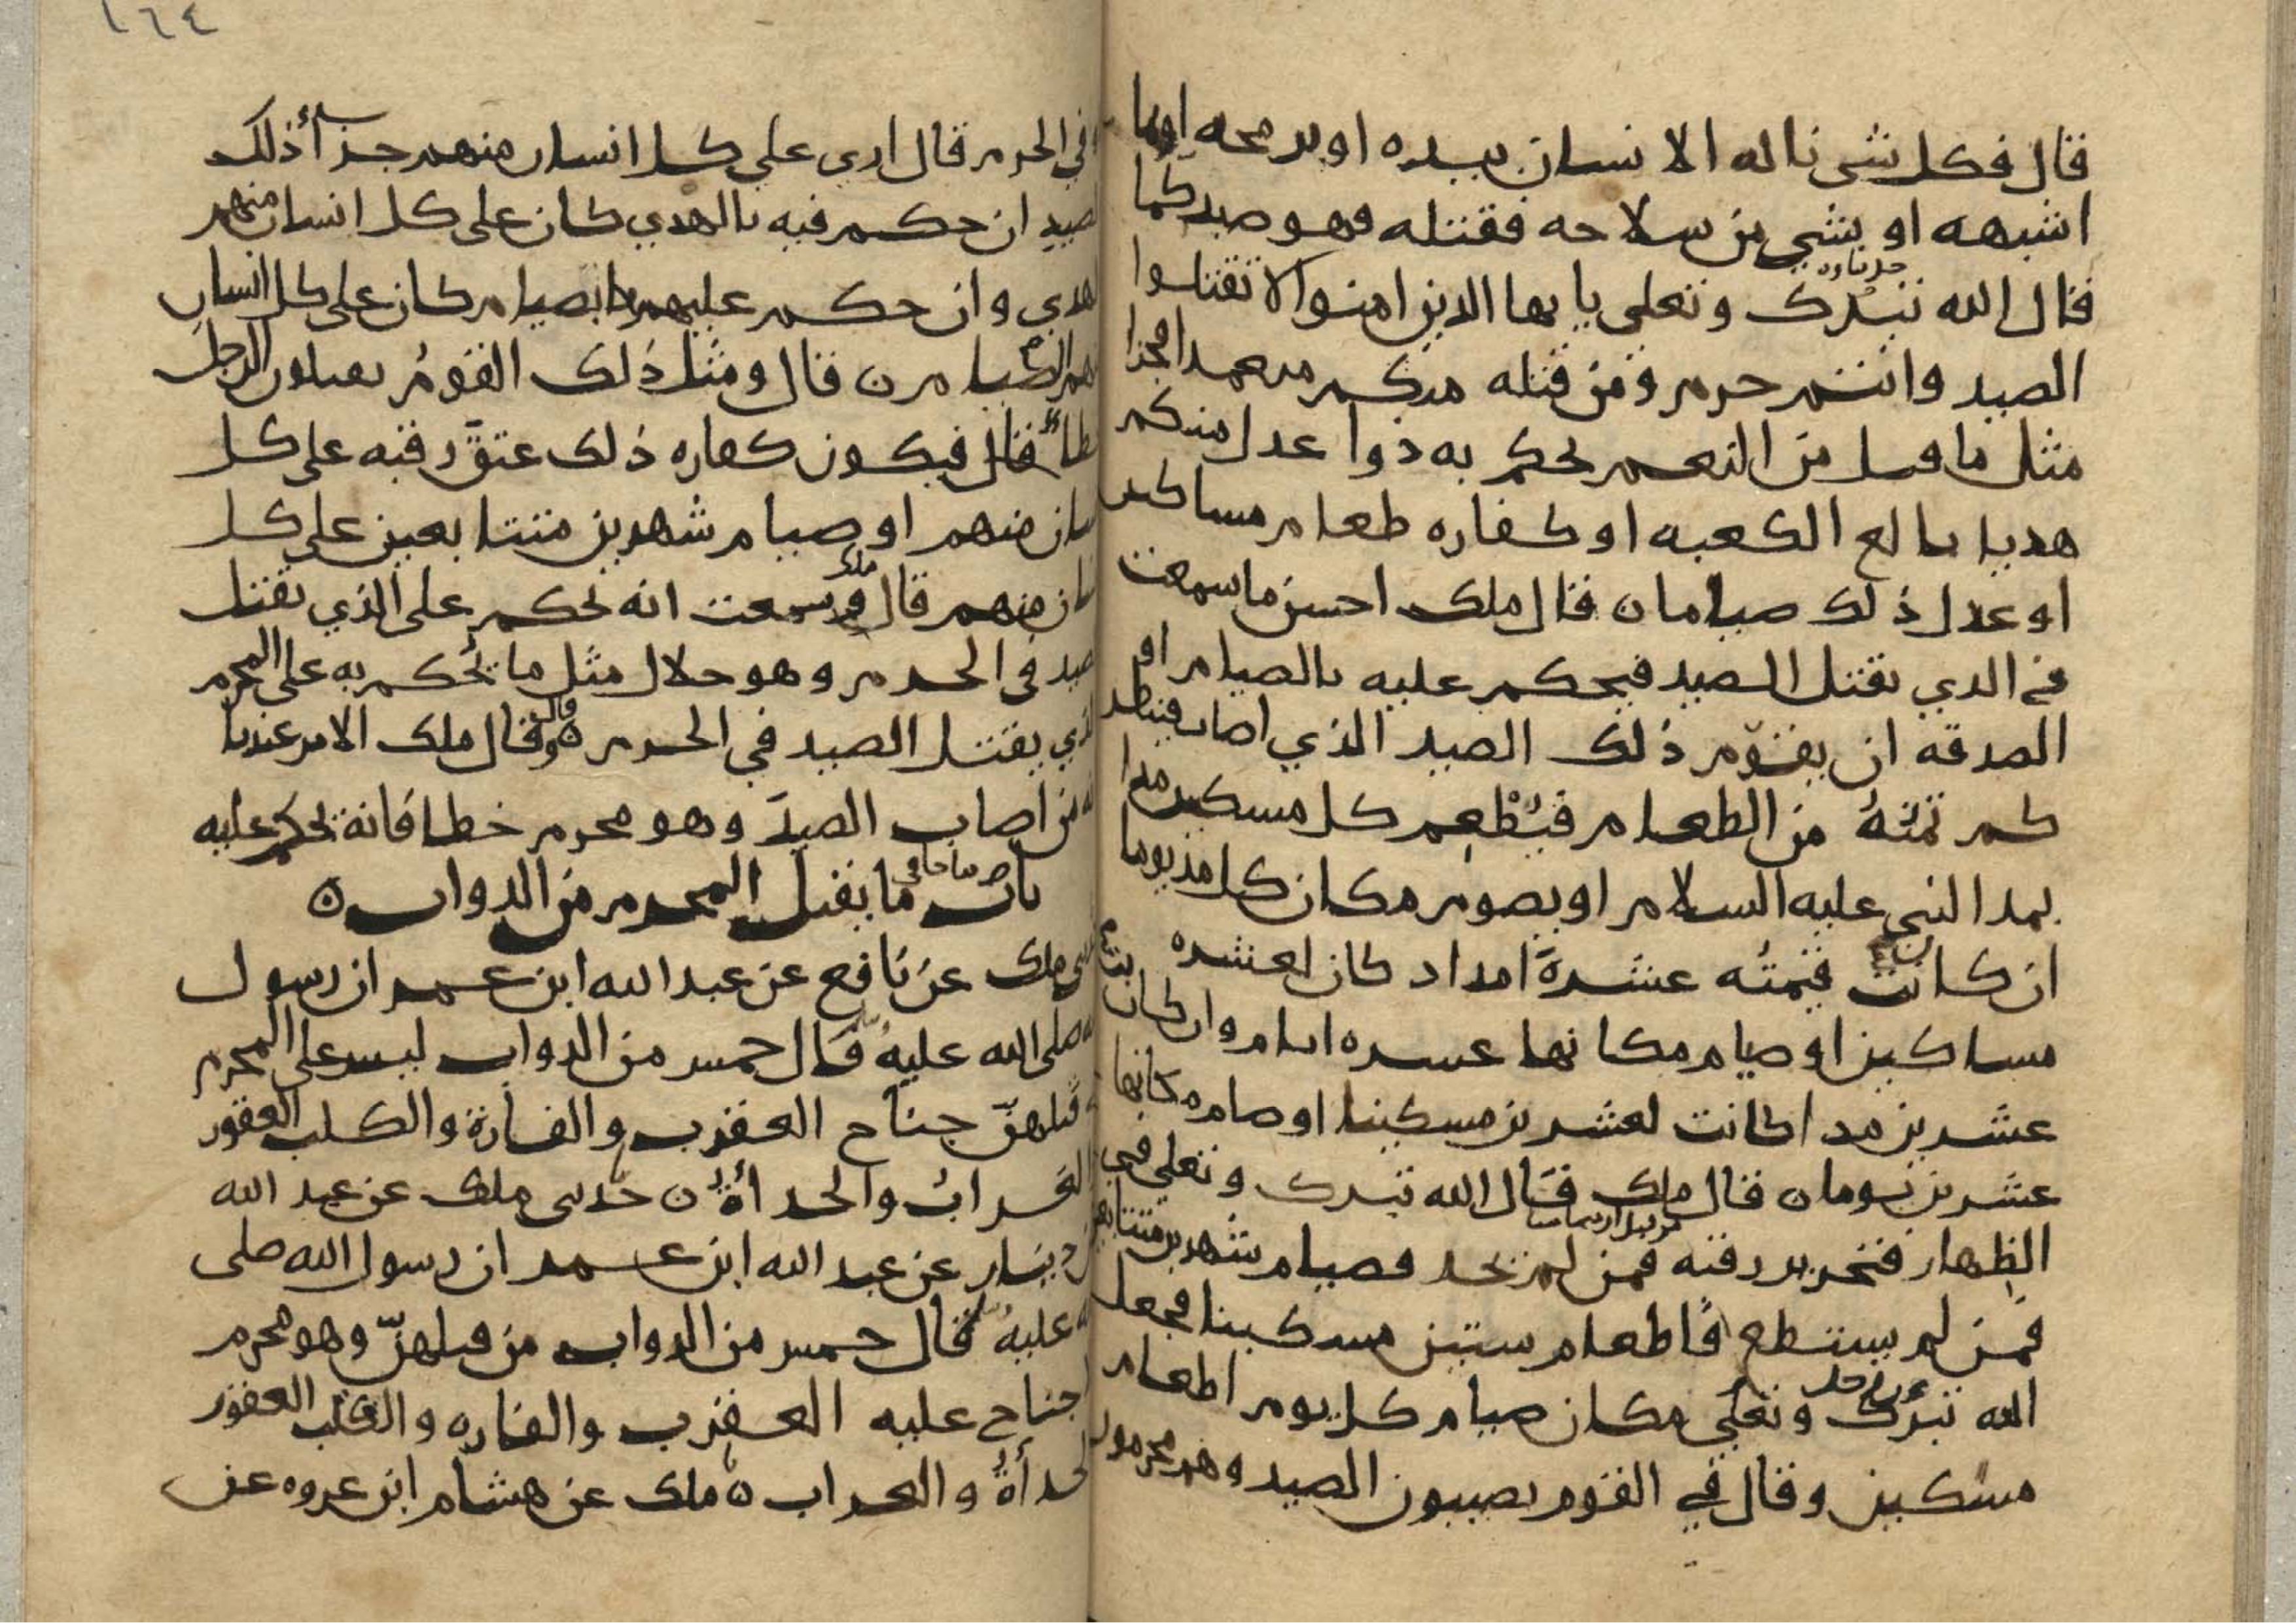 قال فكل شي ناله الانسان بيده او برمحه او بما
اشبهه او بشي من سلاحه فقتله فهو صيد كما
قال الله تبرك وتعلى يايها الذين امنوا لا تقتلوا
الصيد وانتم حرم ومن قتله منكم متعمدا فجزا
مثل ما قتل من النعم يحكم به ذوا عدل منكم
هديا بالغ الكعبه او كفاره طعام مساكين
او عدل ذلك صياما ه قال ملك احسن ما سمعت
في الذي يقتل الصيد فيحكم عليه بالصيام او
الصدقه ان يقوّم ذلك الصيد الذي اصاب فينظر
كم ثمنُهُ من الطعام فيُطْعِم كل مسكين مدا
بمد النبي عليه السلام او يصوم مكان كل مد يوما
ان كانت قيمتُه عشرةَ امداد كان لعشره
مساكين او صيام مكانها عشره ايام وان كانت
عشرين مدا كانت لعشرين مسكينا او صام مكانها
عشرين يوما ه قال ملك قال الله تبرك وتعلى في
الظهار فتحرير رقبه فمن لم يجد فصيام شهرين متتابعين
من قبل ان يتماسا
فمن لم يستطع فاطعام ستين مسكينا فجعل
الله تبرك وتعلى مكان صيام كل يوم اطعام
مسكين وقال في القوم يصيبون الصيد وهم محرمون
١٦٤
في الحرم قال اري علي كل انسان منهم جزأ ذلك
الصيد ان حكم فيه بالهدي كان على كل انسان منهم
هدي وان حكم عليهم بالصيام كان على كل انسان
منهم الصيام ه قال ومثل ذلك القومُ يقتلون الرجل
خطاً قال فيكون كفاره ذلك عتق رقبه على كل
انسان منهم او صيام شهرين متتابعين على كل
انسان منهم قال ملك سمعت انه يحكم على الذي يقتل
الصيد في الحرم وهو حلال مثل ما يُحكم به على المحرم
الذي يقتل الصيد في الحرم ه وقال ملك الامر عندنا
انه من اصاب الصيدَ وهو محرم خطا فانه يحكم عليه
باب ما يقتل المحرم من الدواب ه
ملك عن نافع عن عبد الله ابن عمر ان رسول
الله صلى الله عليه قال خمس من الدواب ليس على المحرم
في قتلهنّ جناح العقرب والفارة والكلب العقور
والغراب والحدأة ه حدثني ملك عن عبد الله
بن دينار عن عبد الله ابن عمر ان رسول الله صلى
الله عليه قال خمس من الدواب من قتلهنّ وهو محرم
فلا جناح عليه العقرب والفاره والكلب العقور
والحدأة والغراب ه ملك عن هشام ابن عروه عن